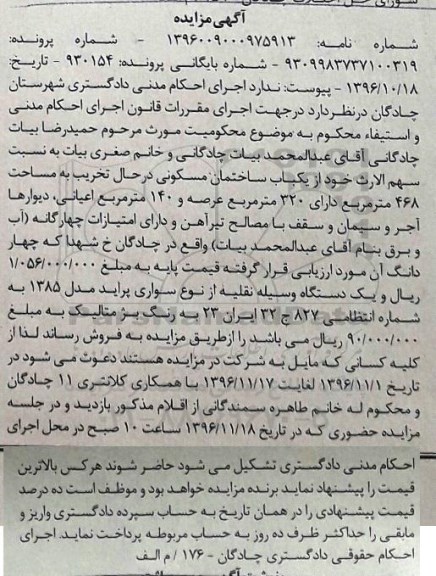 آگهی مزایده
شماره نامه: ۱۳۹۶۰۰۹۰۰۰۹۷۵۹۱۳ - شماره پرونده:
۹۳۰۹۹۸۳۷۳۷۱۰۰۳۱۹ - شماره بایگانی پرونده: ۹۳۰۱۵۴ - تاریخ:
۱۳۹۶/۱۰/۱۸ - پیوست: ندارد اجرای احکام مدنی دادگستری شهرستان
چادگان درنظردارد درجهت اجرای مقررات قانون اجرای احکام مدنی
و استیفاء محکوم به موضوع محکومیت مورث مرحوم حمیدرضا بیات
چادگانی آقای عبدالمحمد بیات چادگانی و خانم صغری بیات به نسبت
سهم الارث خود از یکباب ساختمان مسکونی درحال تخریب به مساحت
۴۶۸ مترمربع دارای ۳۲۰ مترمربع عرصه و ۱۴۰ مترمربع اعیانی، دیوارها
آجر و سیمان و سقف با مصالح تیرآهن و دارای امتیازات چهارگانه (آب
و برق بنام آقای عبدالمحمد بیات) واقع در چادگان خ شهدا که چهار
دانگ آن مورد ارزیابی قرار گرفته قیمت پایه به مبلغ ۱/۰۵۶/۰۰۰/۰۰۰
ریال و یک دستگاه وسیله نقلیه از نوع سواری پراید مدل ۱۳۸۵ به
شماره انتظامی ۸۲۷ ج ۳۲ ایران ۲۳ به رنگ بژ متالیک به مبلغ
۹۰/۰۰۰/۰۰۰ ریال می باشد را ازطریق مزایده به فروش رساند لذا از
کلیه کسانی که مایل به شرکت در مزایده هستند دعوت می شود در
تاریخ ۱۳۹۶/۱۱/۱ لغایت ۱۳۹۶/۱۱/۱۷ با همکاری کلانتری ۱۱ چادگان
و محکوم له خانم طاهره سمندگانی از اقلام مذکور بازدید و در جلسه
مزایده حضوری که در تاریخ ۱۳۹۶/۱۱/۱۸ ساعت ۱۰ صبح در محل اجرای
احکام مدنی دادگستری تشکیل می شود حاضر شوند هرکس بالاترین
قیمت را پیشنهاد نماید برنده مزایده خواهد بود و موظف است ده درصد
قیمت پیشنهادی را در همان تاریخ به حساب سپرده دادگستری واریز و
مابقی را حداکثر ظرف ده روز به حساب مربوطه پرداخت نماید. اجرای
احکام حقوقی دادگستری چادگان - ۱۷۶ / م الف